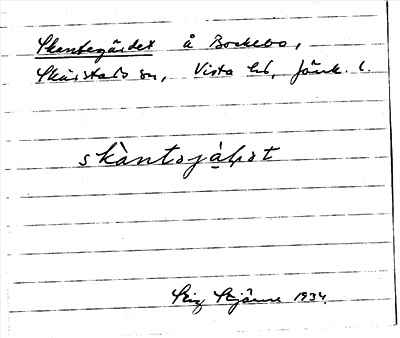 Skantegärdet å Bockebo,
Skärstads sn, Vista hd, Jönk. l.
skàntajàḷɔt
Stig Stjärne 1934.